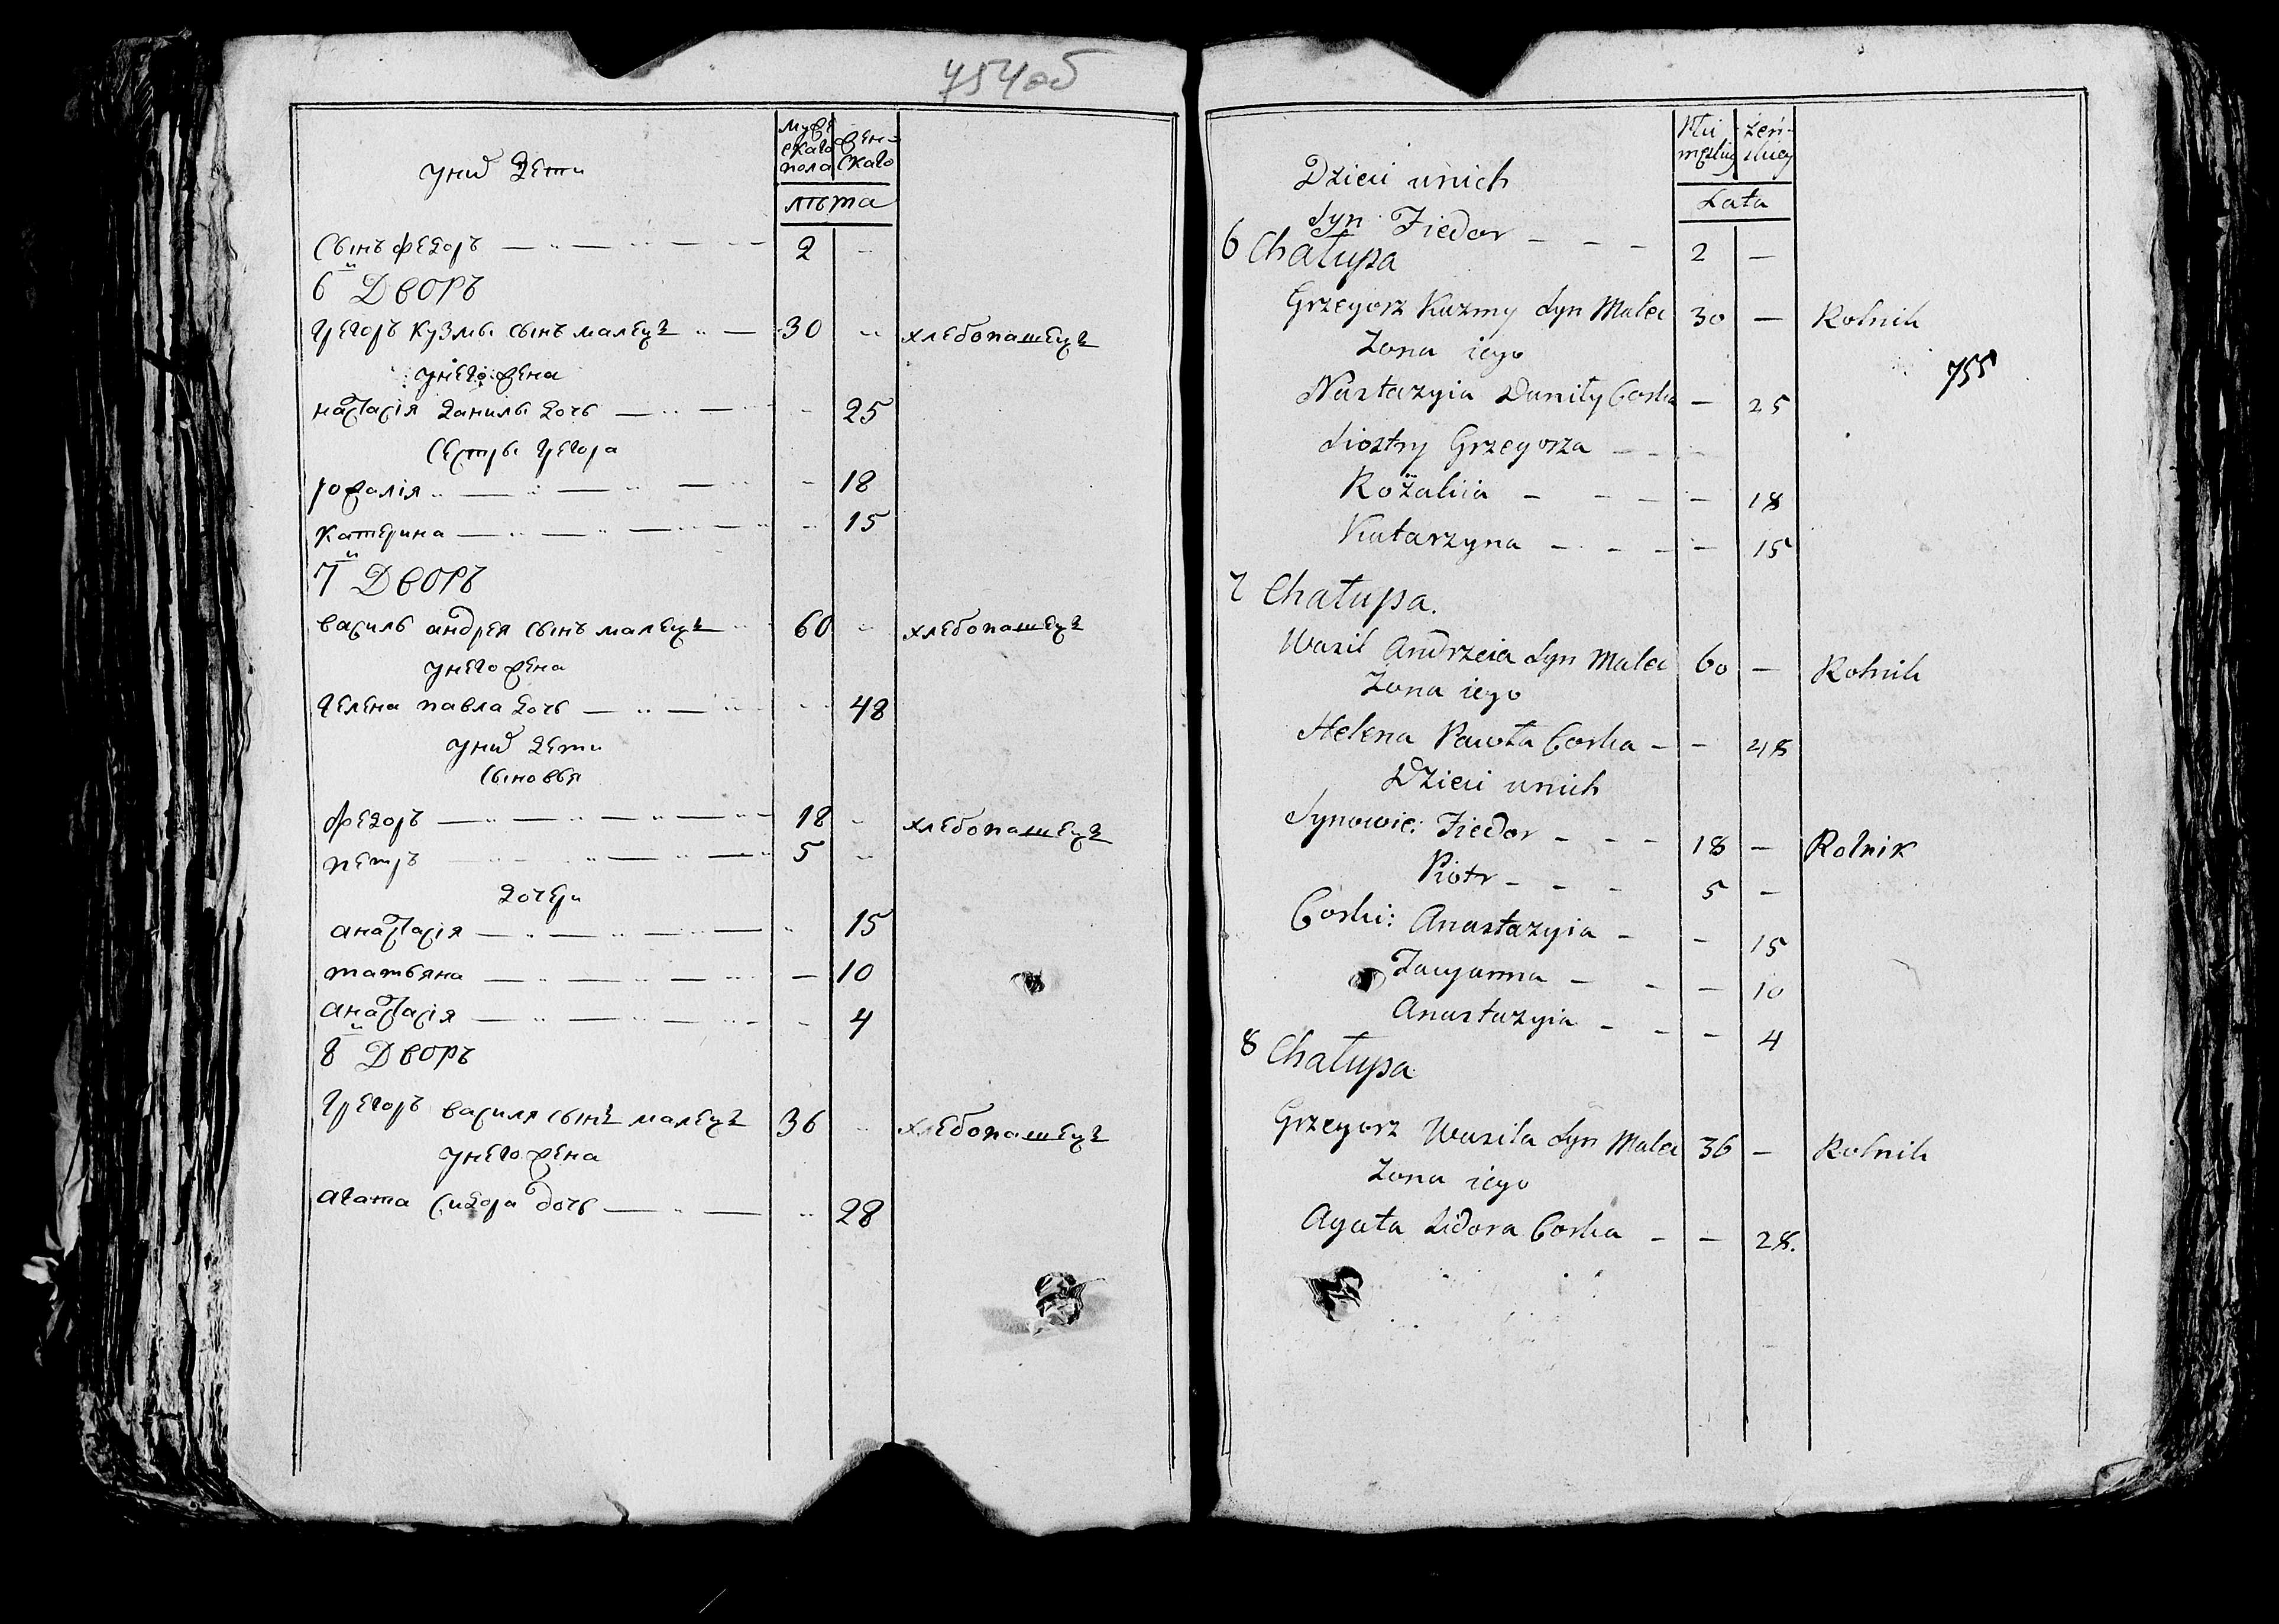 754об
у них дети
мужескаго пола
женскаго
лѣта
сынъ федоръ 2
6й Дворъ
григоръ кузмы сынъ малецъ 30 хлебопашецъ
у него жена
настасія данилы дочь 25
сестры григора
рожалія 18
катерина 15
7й Дворъ
василь андрея сынъ малецъ 60 хлебопашецъ
у него жена
гелена павла дочь 48
у них дети
сыновья
федоръ 18 хлебопашецъ
петръ 5
дочери
анастасія 15
татьяна 10
анастасія 4
8й Дворъ
григоръ василя сынъ малецъ 36 хлебопашецъ
у него жена
агата сидора дочь 28
Dzieci u nich
Płci męzkiey
żeńskiey
Lata
Syn Fiedor 2 —
6 Chałupa
Grzegorz Kuzmy Syn Malec 30 — Rolnik
Zona iego
755
Nastazyia Daniły Corka — 25
Siostry Grzegorza
Rożaliia — 18
Katarzyna — 15
7 Chałupa.
Wasil Andrzeia Syn Malec 60 — Rolnik
Zona iego
Helena Pawła Corka — 48
Dzieci u nich
Synowie: Fiedor 18 — Rolnik
Piotr 5 —
Corki: Anastazyia — 15
Tacyanna — 10
Anastazyia — 4
8 Chałupa
Grzegorz Wasila Syn Malec 36 — Rolnik
Zona iego
Agata Sidora Corka — 28.